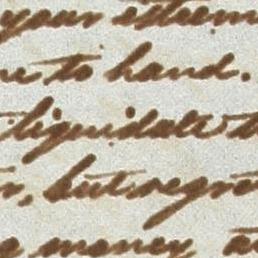 your esteem
to hand.
liquidate
, but regret
money